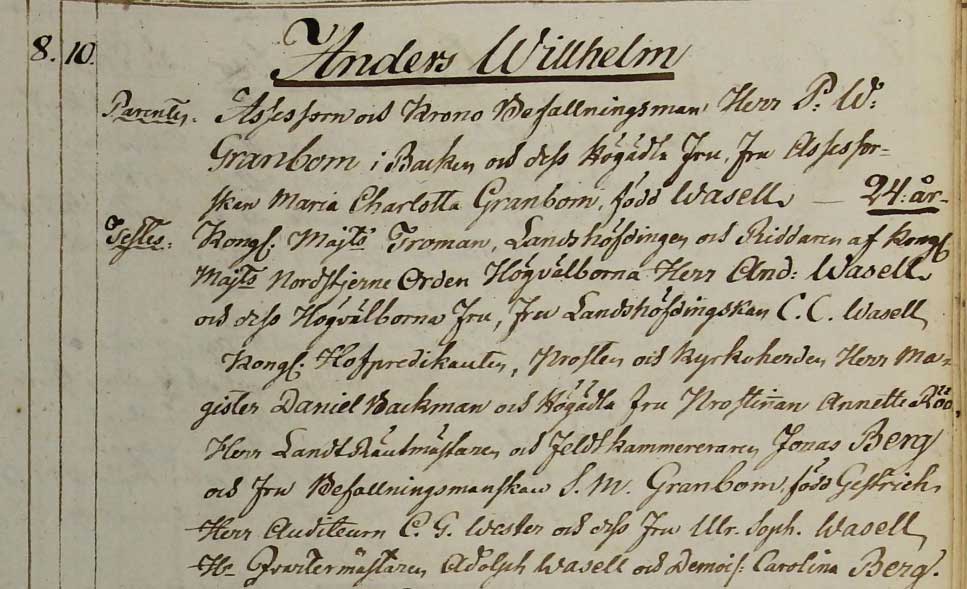 8. 10. Anders Willhelm
Parentes. Assessorn och Krono Befallningsman Herr P: W:
Granbom i Backen och dess Högädla Fru, Fru Assessor-
skan Maria Charlotta Granbom, född Wasell — 24: år-
Testes: Kongl: Majts Troman, Landshöfdingen och Riddaren af Kongl
Majts Nordstjerne Orden Högvälborna Herr And: Wasell
och dess Högvälborna Fru, Fru Landshöfdingskan C. C. Wasell
Kongl: Hofpredikanten, Prosten och Kyrkoherden Herr Ma-
gister Daniel Backman och Högädla Fru Prostinnan Annette
Herr Landt Räntmästaren och Feldtkammereraren Jonas Berg
och Fru Befallningsmanskan S. M. Granbom, född Gestrich
Herr Auditeurn C. G. Wester och dess Fru Ulr. Soph. Wasell
Hr Qvartermästaren Adolph Wasell och Demois: Carolina Berg.